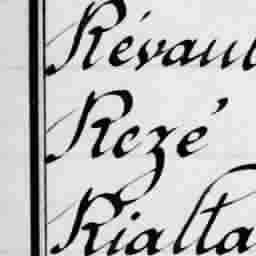 Révaul
Rezé
Rialta